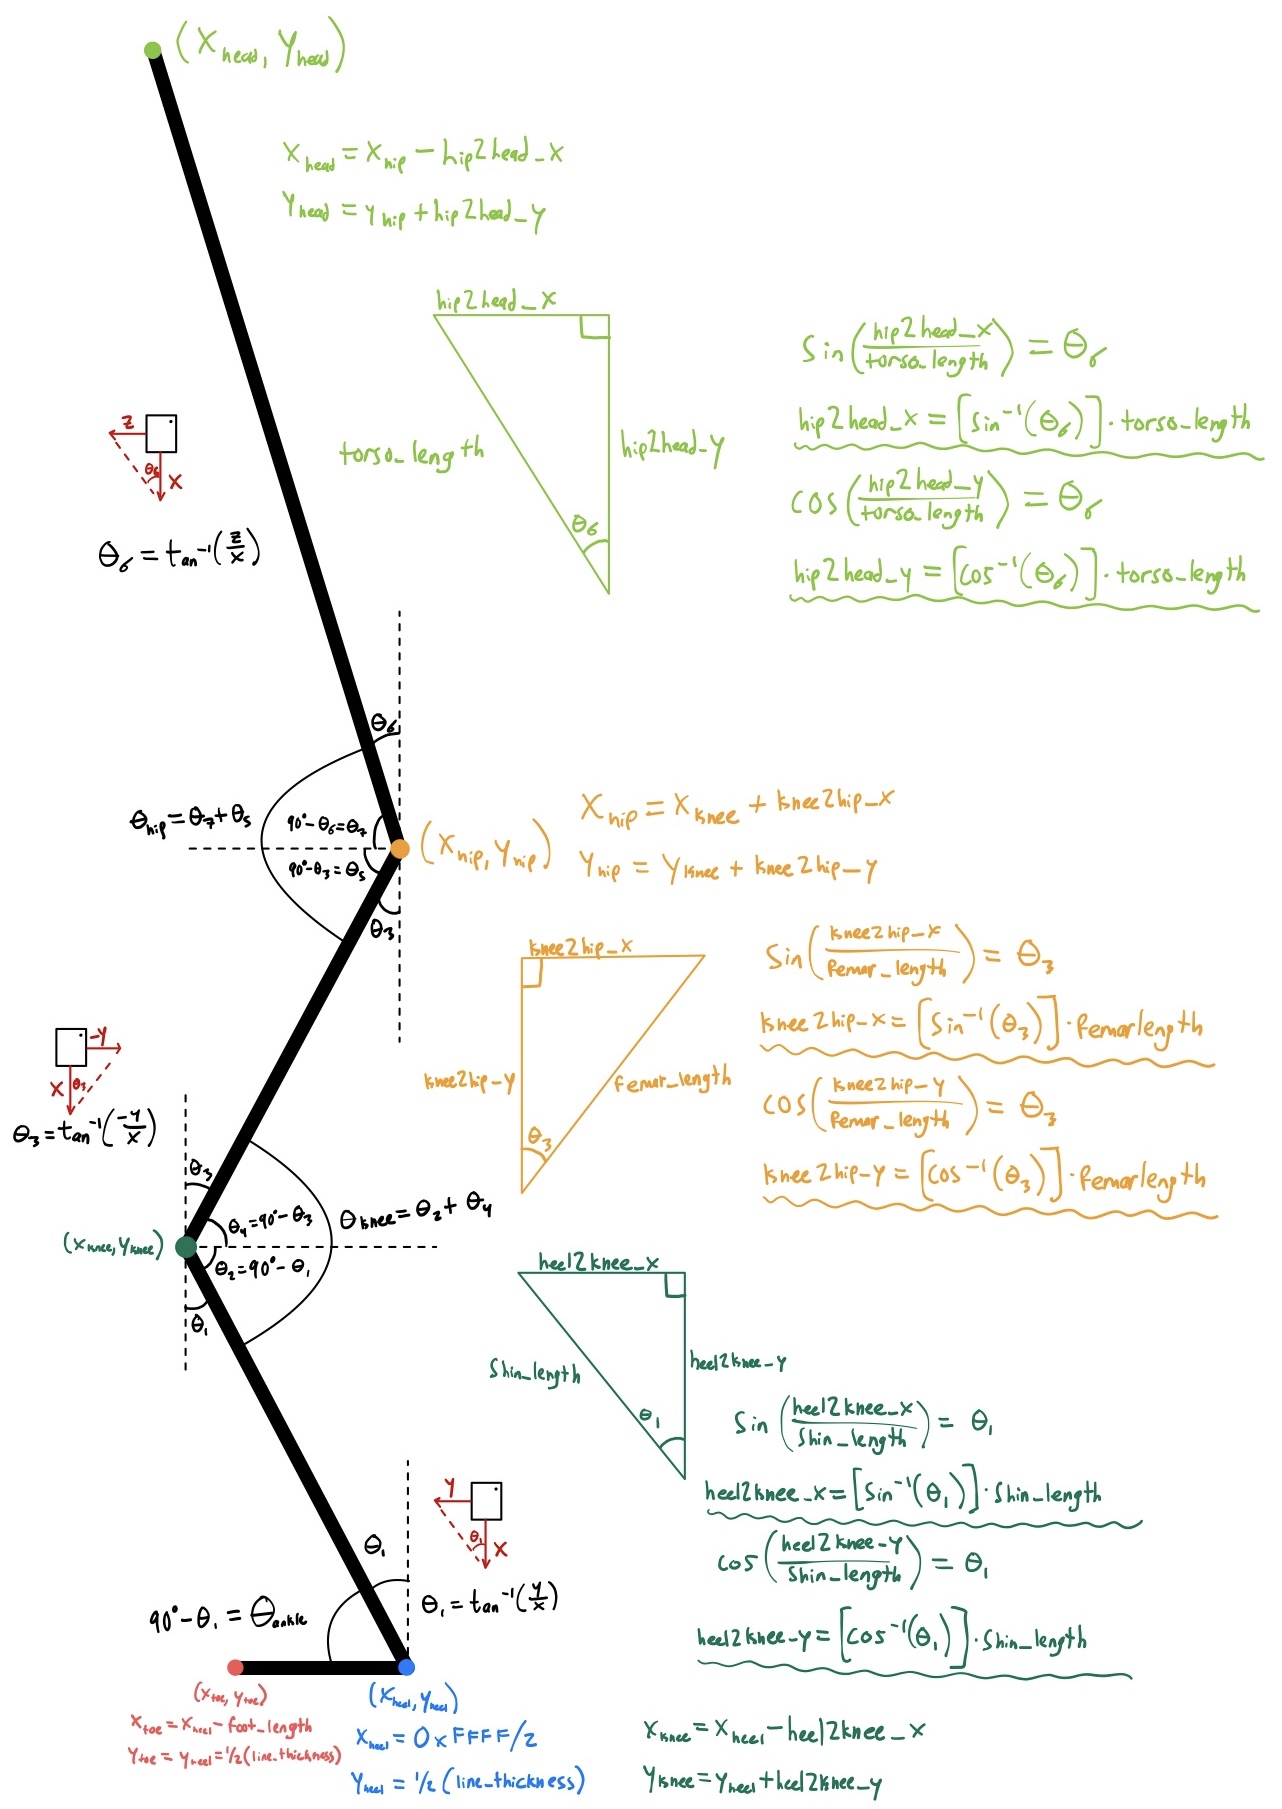 (x_head, y_head)
x_head = x_hip - hip2head_x
y_head = y_hip + hip2head_y
hip2head_x
torso_length
hip2head_y
θ₆
sin(hip2head_x/torso_length) = θ₆
hip2head_x = [sin⁻¹(θ₆)] · torso_length
cos(hip2head_y/torso_length) = θ₆
hip2head_y = [cos⁻¹(θ₆)] · torso_length
z
θ₆
x
θ₆ = tan⁻¹(z/x)
θ₆
θ_hip = θ₇ + θ₅
90° - θ₆ = θ₇
90° - θ₃ = θ₅
θ₃
(x_hip, y_hip)
x_hip = x_knee + knee2hip_x
y_hip = y_knee + knee2hip_y
knee2hip_x
knee2hip_y
femur_length
θ₃
sin(knee2hip_x/femur_length) = θ₃
knee2hip_x = [sin⁻¹(θ₃)] · femurlength
cos(knee2hip_y/femur_length) = θ₃
knee2hip_y = [cos⁻¹(θ₃)] · femurlength
-y
x
θ₃
θ₃ = tan⁻¹(-y/x)
θ₃
θ₄ = 90° - θ₃
θ_knee = θ₂ + θ₄
(x_knee, y_knee)
θ₂ = 90° - θ₁
θ₁
heel2knee_x
shin_length
heel2knee_y
θ₁
sin(heel2knee_x/shin_length) = θ₁
heel2knee_x = [sin⁻¹(θ₁)] · shin_length
cos(heel2knee_y/shin_length) = θ₁
heel2knee_y = [cos⁻¹(θ₁)] · shin_length
y
θ₁
x
θ₁
θ₁ = tan⁻¹(y/x)
90° - θ₁ = θ_ankle
(x_toe, y_toe)
x_toe = x_heel - foot_length
y_toe = y_heel = 1/2(line_thickness)
(x_heel, y_heel)
x_heel = 0xFFFF/2
y_heel = 1/2(line_thickness)
x_knee = x_heel - heel2knee_x
y_knee = y_heel + heel2knee_y